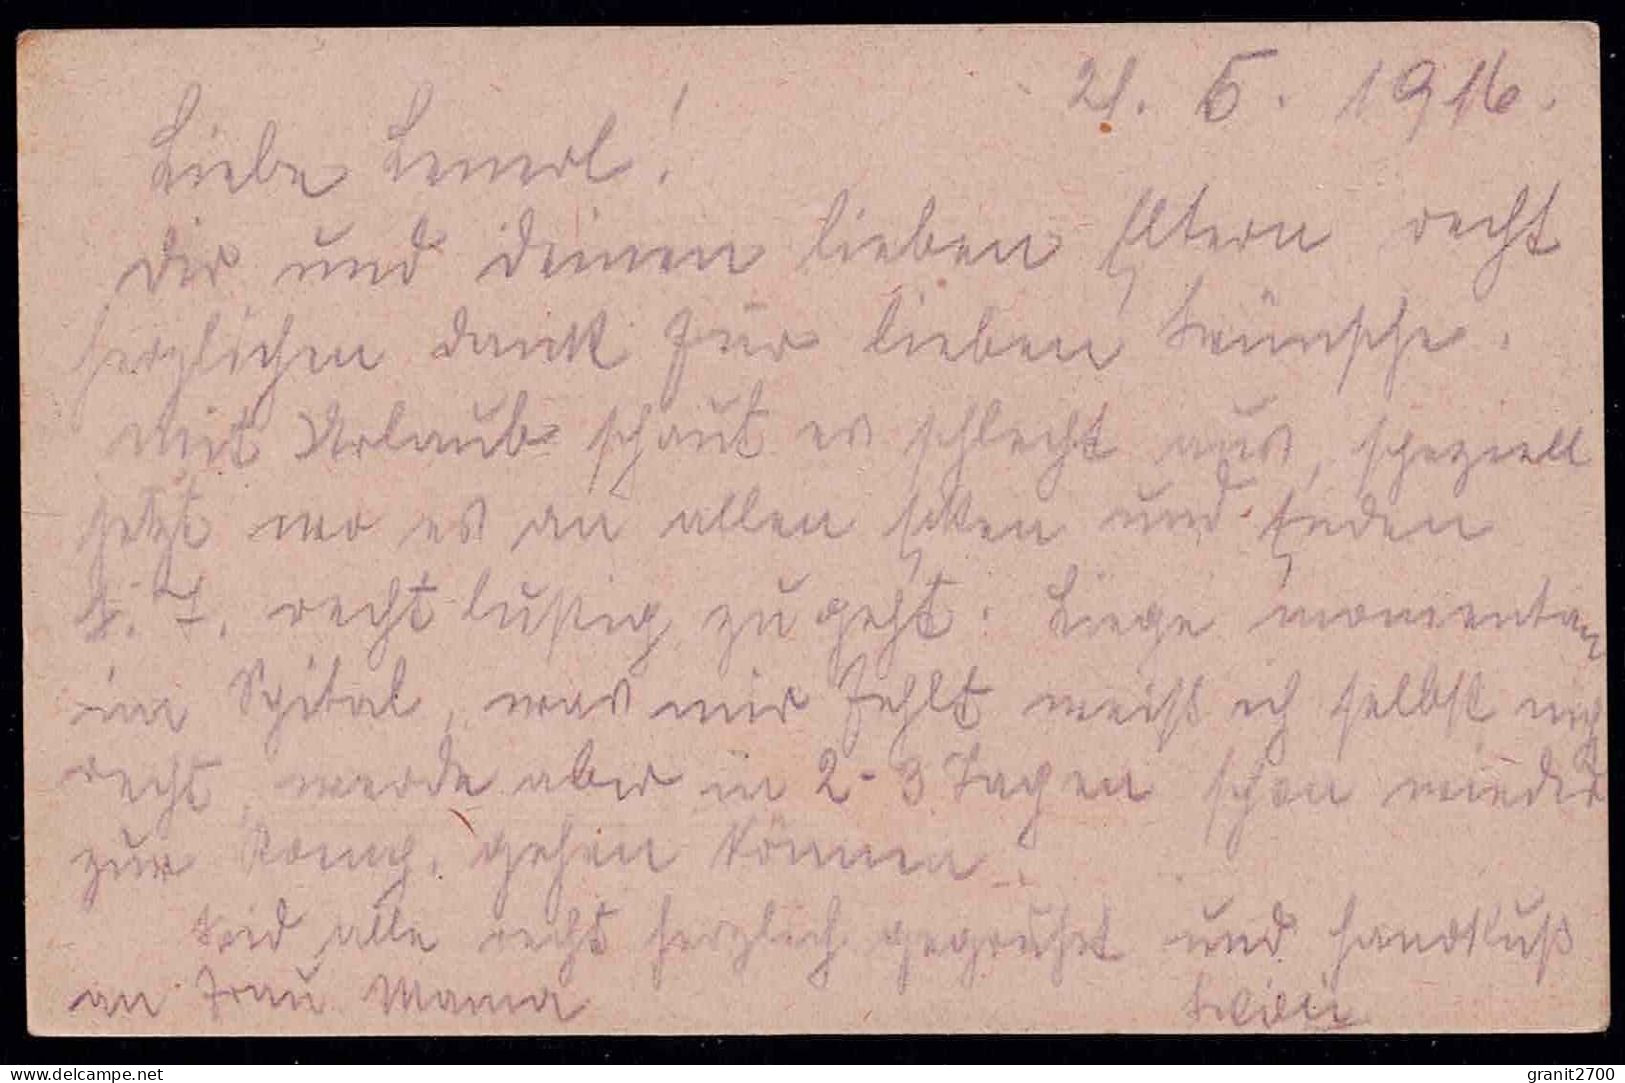 21. 5. 1916.
Liebe Lenerl!
Dir und deinen lieben Eltern recht
herzlichen Dank für lieben Wünsche.
Mit Urlaub schaut es schlecht aus, speziell
jetzt wo es an allen Ecken und Enden
recht lustig zugeht. Liege momentan
im Spital, was mir fehlt weiß ich selbst nich
recht, werde aber in 2-3 Tagen schon wieder
zur Komp. gehen können.
Seid alle recht herzlich gegrüßt und Handkuß
an Frau Mama
delcampe.net
granit2700